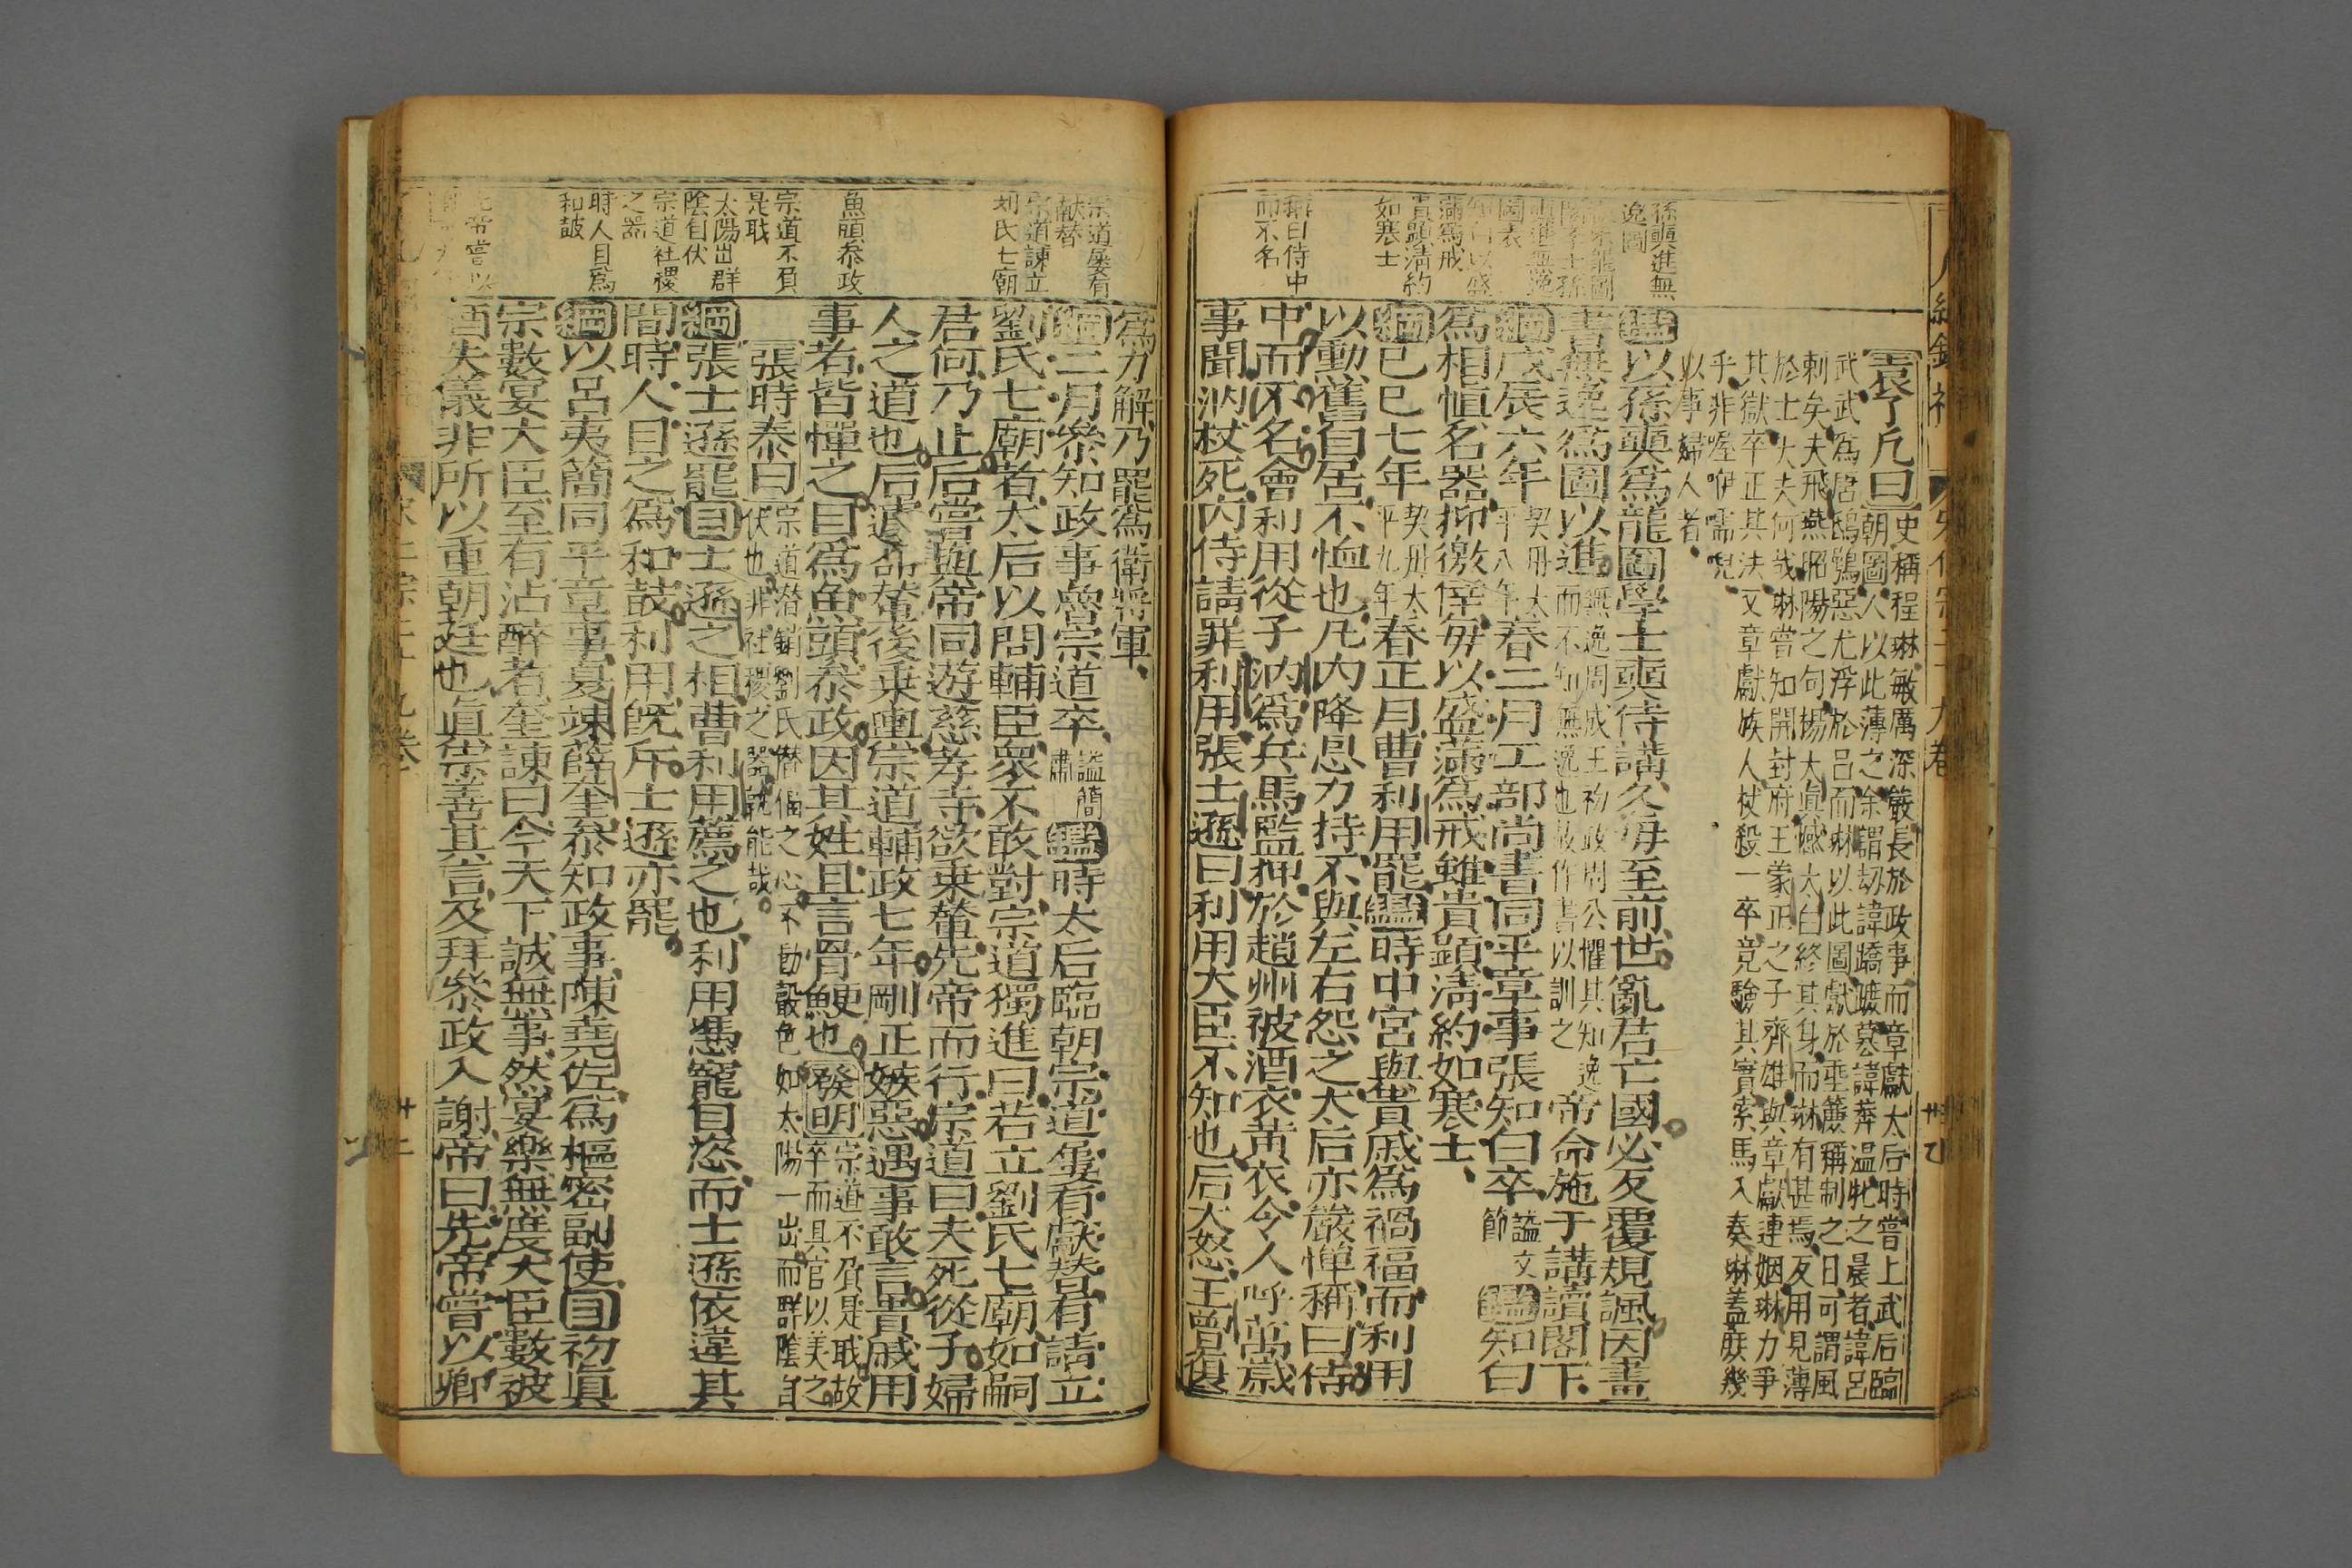 孫奭進無
逸圖
貴顯清約
如寒士
稱曰侍中
而不名
袁了凡曰
史稱程琳敏厲深嚴長於政事而章獻太后時嘗上武后臨
朝圖人以此薄之余謂刼諱蹻蹠墓諱莽温牝之晨者諱呂
武武爲唐鴟鴞惡尤浮於呂而琳以此圖獻於垂簾稱制之日可謂風
刺矣夫飛燕昭陽之句楊太眞憾太白終其身而琳有甚焉反用見薄
於士大夫何哉琳嘗知開封府王蒙正之子齊雄與章獻連姻琳力爭
其獄卒正其法又章獻族人杖殺一卒竟驗其實索馬入奏琳蓋庶幾
乎非喔咿嚅唲
以事婦人者
鑑以孫奭爲龍圖學士奭侍講久每至前世亂君亡國必反覆規諷因畫
書無逸爲圖以進無逸周成王初政周公懼其知逸
而不知無逸也故作書以訓之帝命施于講讀閣下
綱戊辰六年契丹太
平八年春二月工部尚書同平章事張知白卒謚文
節鑑知白
爲相愼名器抑徼倖每以盛滿爲戒雖貴顯清約如寒士
綱己巳七年契丹太
平九年春正月曹利用罷鑑時中宮與貴戚爲禍福而利用
以勳舊自居不恤也凡內降恩力持不與左右怨之太后亦嚴憚稱曰侍
中而不名會利用從子汭爲兵馬監押於趙州被酒衣黃衣令人呼萬歲
事聞汭杖死內侍請罪利用張士遜曰利用大臣不知也后大怒王曾俱
宗道屢有
献替
宗道諫立
刘氏七廟
魚頭叅政
宗道不負
是耿
太陽出群
陰自伏
宗道社稷
之器
時人目爲
和皷
先帝嘗以
爲力解乃罷爲衛將軍
綱二月叅知政事魯宗道卒謚簡
肅鑑時太后臨朝宗道屢有獻替有請立
劉氏七廟者太后以問輔臣衆不敢對宗道獨進曰若立劉氏七廟如嗣
君何乃止后嘗與帝同遊慈孝寺欲乗輦先帝而行宗道曰夫死從子婦
人之道也后遽命輦後乗輿宗道輔政七年剛正嫉惡遇事敢言貴戚用
事者皆憚之目爲魚頭叅政因其姓且言骨鯁也發明宗道不負是耿故
卒而具官以美之
張時泰曰宗道潜銷劉氏僭偪之心不動聲色如太陽一出而群陰自
伏也非社稷之器孰能哉
綱張士遜罷目士遜之相曹利用薦之也利用憑寵自恣而士遜依違其
間時人目之爲和鼓利用旣斥士遜亦罷
綱以呂夷簡同平章事夏竦薛奎叅知政事陳堯佐爲樞密副使目初眞
宗數宴大臣至有沾醉者奎諫曰今天下誠無事然宴樂無度大臣數被
酒失儀非所以重朝廷也眞宗善其言及拜叅政入謝帝曰先帝嘗以卿